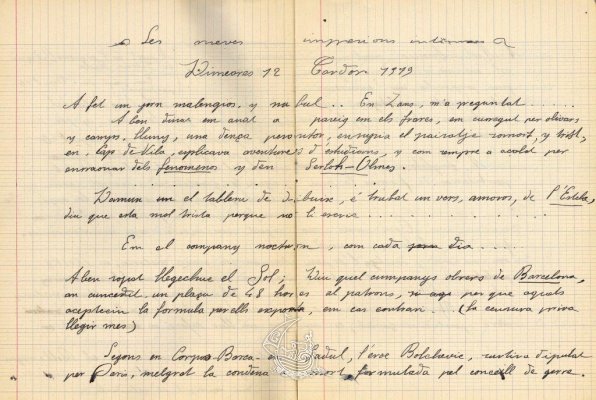 Les meves impresions intimes
Dimecres 12 Tardor 1919
A fet un jorn malengios, y nubul.. En Zans, m'a preguntat......
Aben dinar em anat a pareig em els frares, em corregut per olivars
y camps, lluny, una dença perontor, ensugia el pairatje romort, y trist,
en Cap de Vila, esplicava aventures d'estudiant, y com sempre a acabat per
enraonar dels fenomenos y den Serloh-Olmes.
Damun el tablem de dibuix, é trubat un vers, amoros, de l'Estela,
diu que esta mol trista perque no li escric
Em el company nocturn, com cada dia
Aben sopat llegechue el Sol; Diu quel cumpanys obrers de Barcelona,
an cuncedit un plasu de 48 hores al patrons, per que aquets
aceptecin la formula perells exposta, em cas contrari... (la censura priva
llegir mes)
Segons en Corpus-Barga en Sadul, l'eroe Bolchevic, surtira diputat
per Paris, melgrat la condena a mort formulada pel concell de gerra.